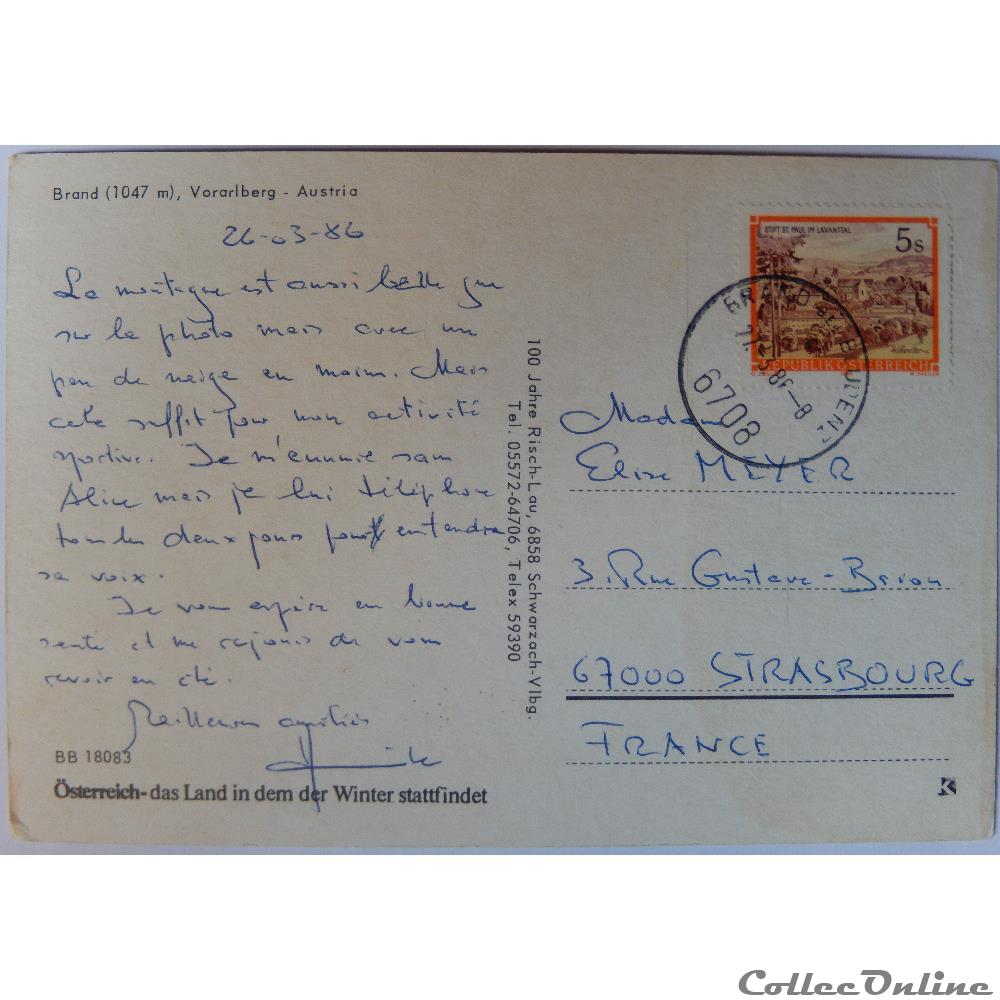 Brand (1047 m), Vorarlberg - Austria
26-03-86
La montagne est aussi belle que
sur la photo mais avec un
peu de neige en moins. Mais
cela suffit pour mon activité
sportive. Je m'ennuie sans
Alice mais je lui téléphone
tous les deux jours pour entendre
sa voix.
Je vous espère en bonne
santé et me réjouis de vous
revoir en été.
Meilleures amitiés
BB 18083
Österreich-das Land in dem der Winter stattfindet
100 Jahre Risch-Lau, 6858 Schwarzach-Vlbg.
Tel. 05572-64706, Telex 59390
STIFT ST. PAUL IM LAVANTTAL
5s
REPUBLIK ÖSTERREICH
BRAND BEI BLUDENZ
86-8
6708
Madame
Elise MEYER
3. Rue Gustave-Brion
67000 STRASBOURG
FRANCE
K
CollecOnline